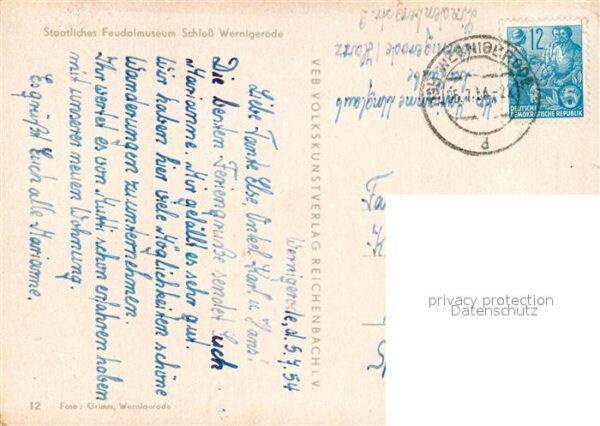 Staatliches Feudalmuseum Schloß Wernigerode
Wernigerode, d. 5.7.54
Liebe Tante Else, Onkel Karl u. Hans!
Die besten Feriengrüße sendet Euch
Marianne. Mir gefällt es sehr gut.
Wir haben hier viele Möglichkeiten schöne
Wanderungen zu unternehmen.
Ihr werdet es von Mutti schon erfahren haben
mit unserer neuen Wohnung.
Es grüßt Euch alle Marianne.
VEB VOLKSKUNSTVERLAG REICHENBACH i. V.
Marianne
Wernigerode / Harz
WERNIGERODE
d
12
DEUTSCHE
DEMOKRATISCHE REPUBLIK
privacy protection
Datenschutz
12 Foto: Grimm, Wernigerode